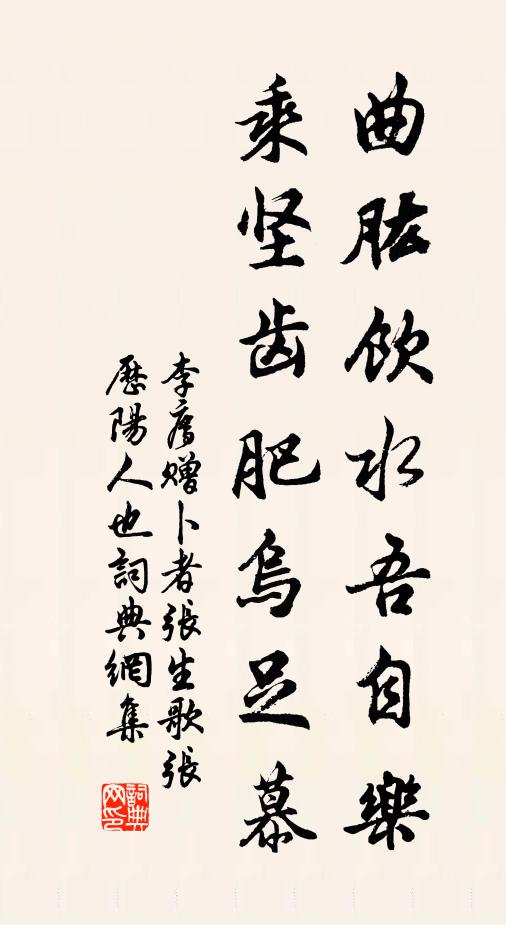 曲肱饮水吾自樂
乘坚齿肥烏足慕
李廌赠卜者張生歌張
歷陽人也詞典網集
詞典网印